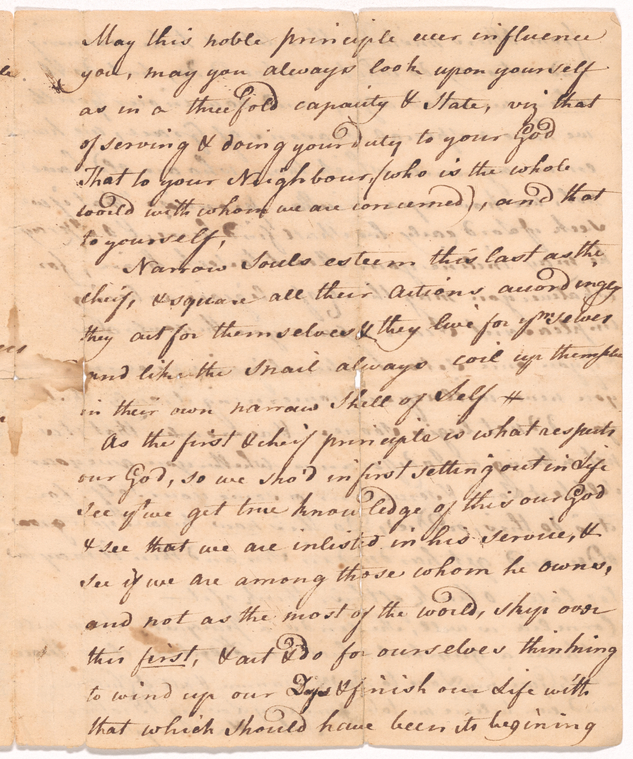 May this noble principle ever influence
you, may you always look upon yourself
as in a threefold capacity & State, viz that
of serving & doing your duty to your God
That to your Neighbour (who is the whole
world with whom we are concerned), and that
to yourself,
Narrow Souls esteem this last as the
cheif, & square all their Actions accordingly
they act for themselves & they live for ymselves
and like the Snail always coil up themselves
in their own narrow Shell of Self #
As the first & cheif principle is what respects
our God, so we sho'd in first setting out in Life
see yt we get true knowledge of this our God
& see that we are inlisted in his service, &
see if we are among those whom he owns,
and not as the most of the world, skip over
this first, & act & do for ourselves thinking
to wind up our Days & finish our Life with
that which should have been its begining